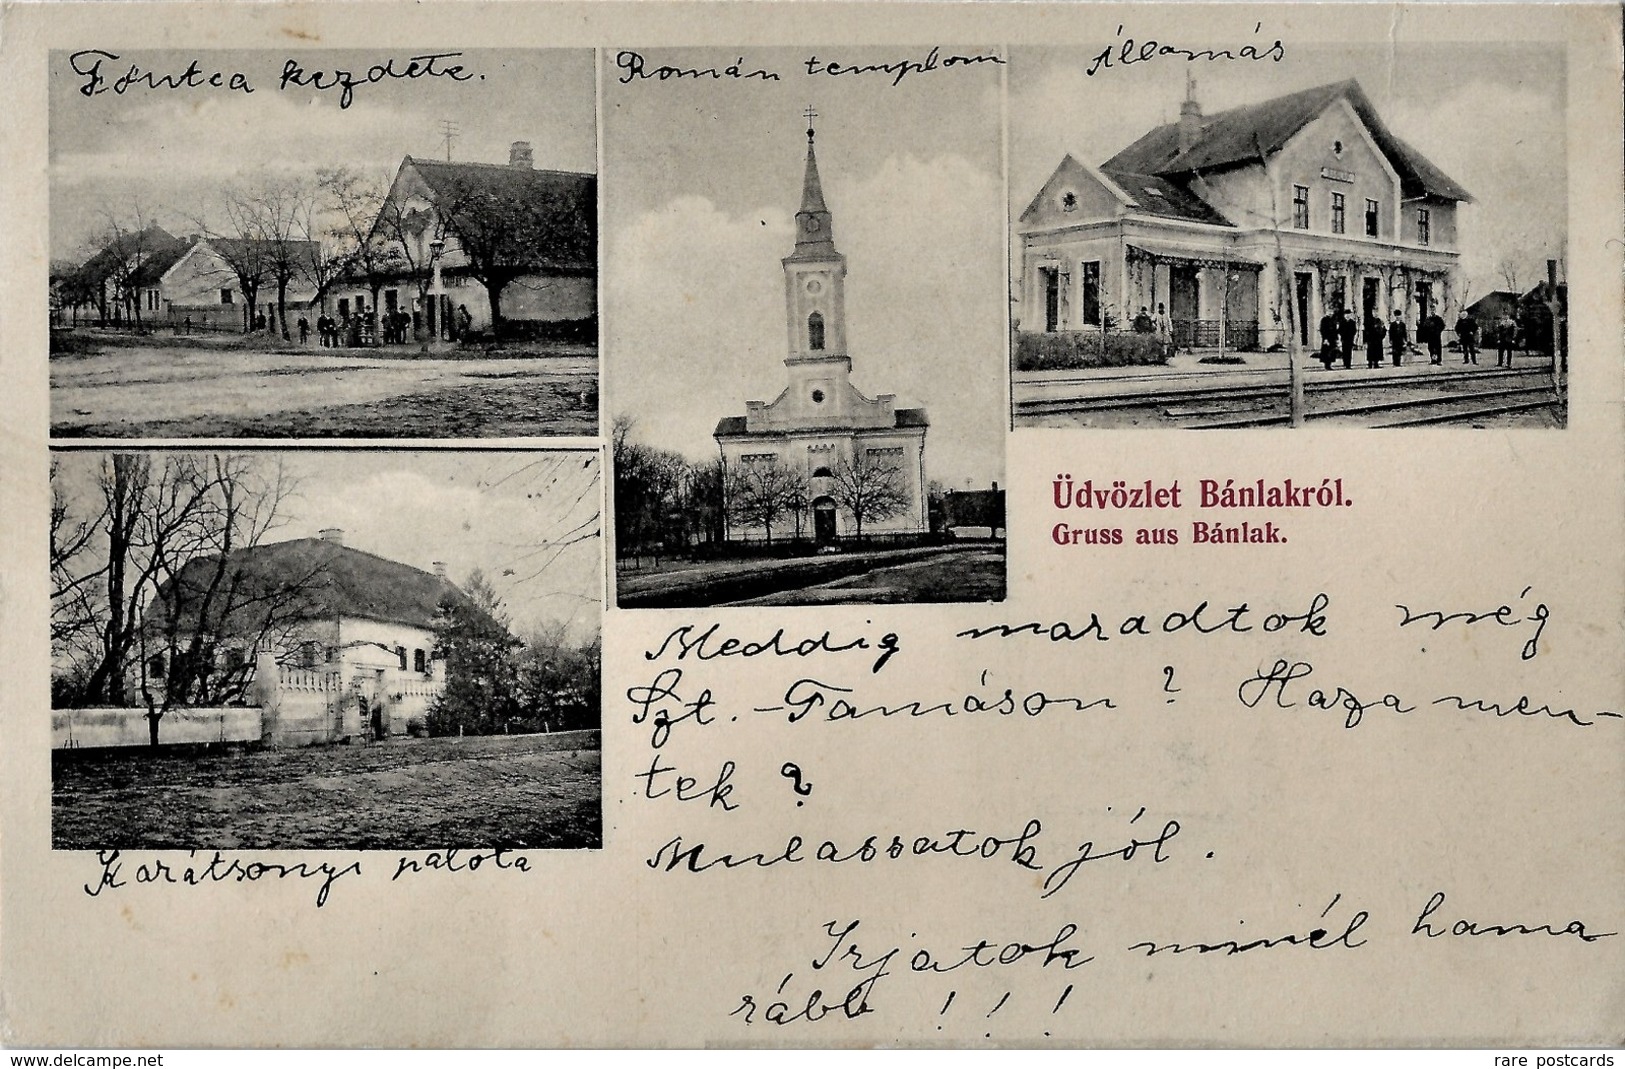 Főutca kezdete.
Román templom
Állomás
Üdvözlet Bánlakról.
Gruss aus Bánlak.
Karátsonyi palota
Meddig maradtok még
Szt.-Tamáson? Haza men-
tek?
Mulassatok jól.
Irjatok minél hama
rább!!!
www.delcampe.net
rare postcards